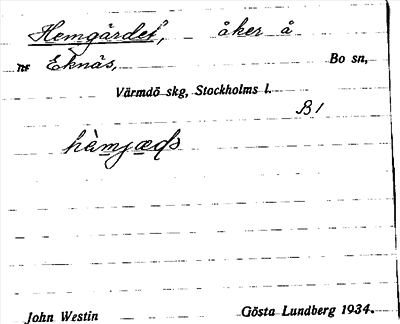 Hemgärdet, åker å
Eknäs, Bo sn,
Värmdö skg, Stockholms l.
B1
John Westin Gösta Lundberg 1934.